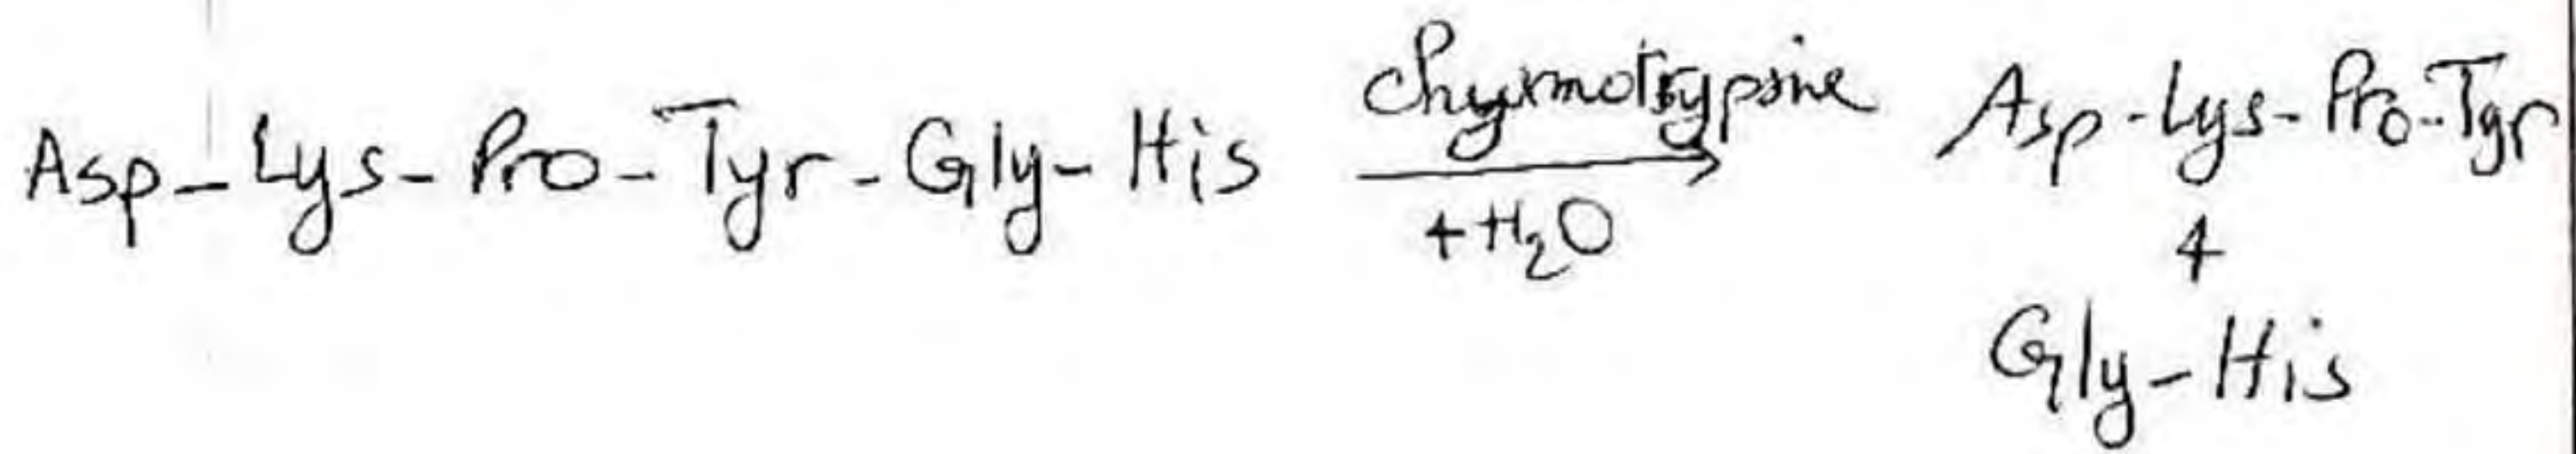 Asp-Lys-Pro-Tyr-Gly-His chymotrypsine Asp-Lys-Pro-Tyr
+H₂O +
Gly-His